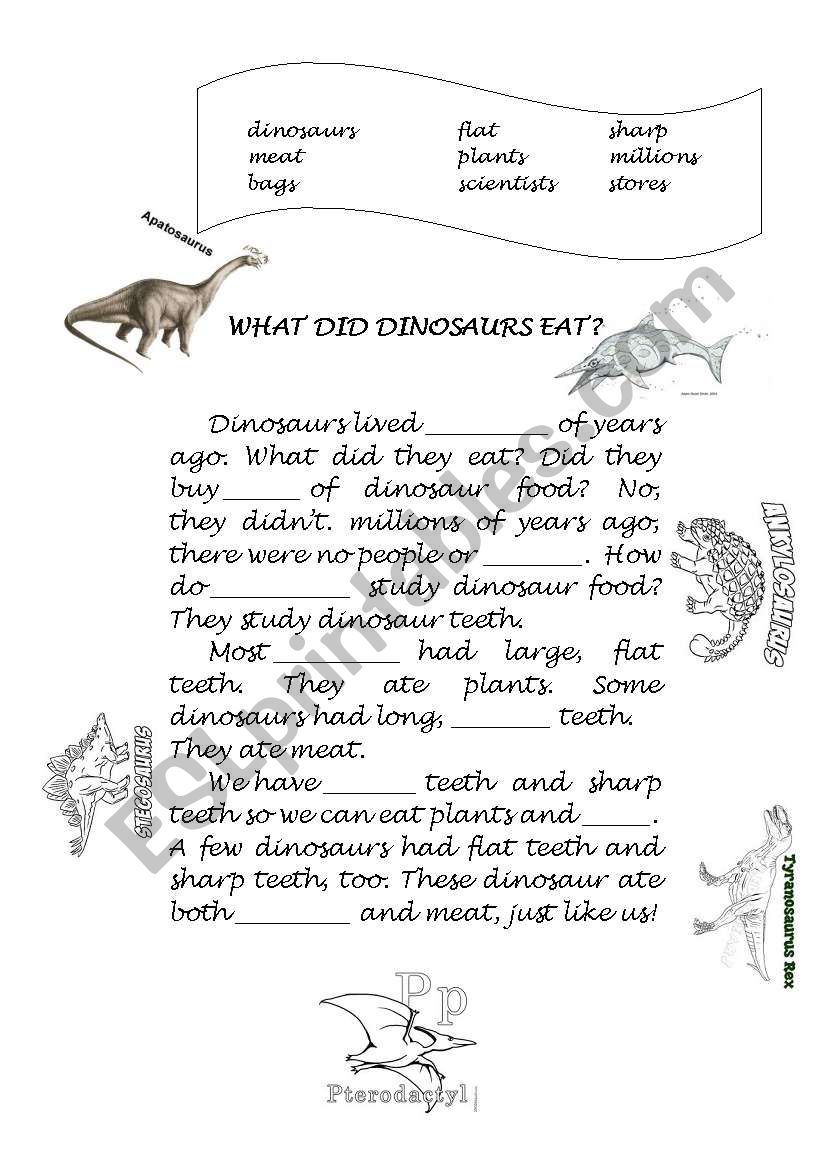 dinosaurs flat sharp
meat plants millions
bags scientists stores
Apatosaurus
WHAT DID DINOSAURS EAT?
Dinosaurs lived __________ of years
ago. What did they eat? Did they
buy ______ of dinosaur food? No,
they didn't. millions of years ago,
there were no people or ________. How
do ___________ study dinosaur food?
They study dinosaur teeth.
Most __________ had large, flat
teeth. They ate plants. Some
dinosaurs had long, ________ teeth.
They ate meat.
We have _______ teeth and sharp
teeth so we can eat plants and _____.
A few dinosaurs had flat teeth and
sharp teeth, too. These dinosaur ate
both _________ and meat, just like us!
ANKYLOSAURUS
STEGOSAURUS
Tyranosaurus Rex
Pp
Pterodactyl
ESLprintables.com